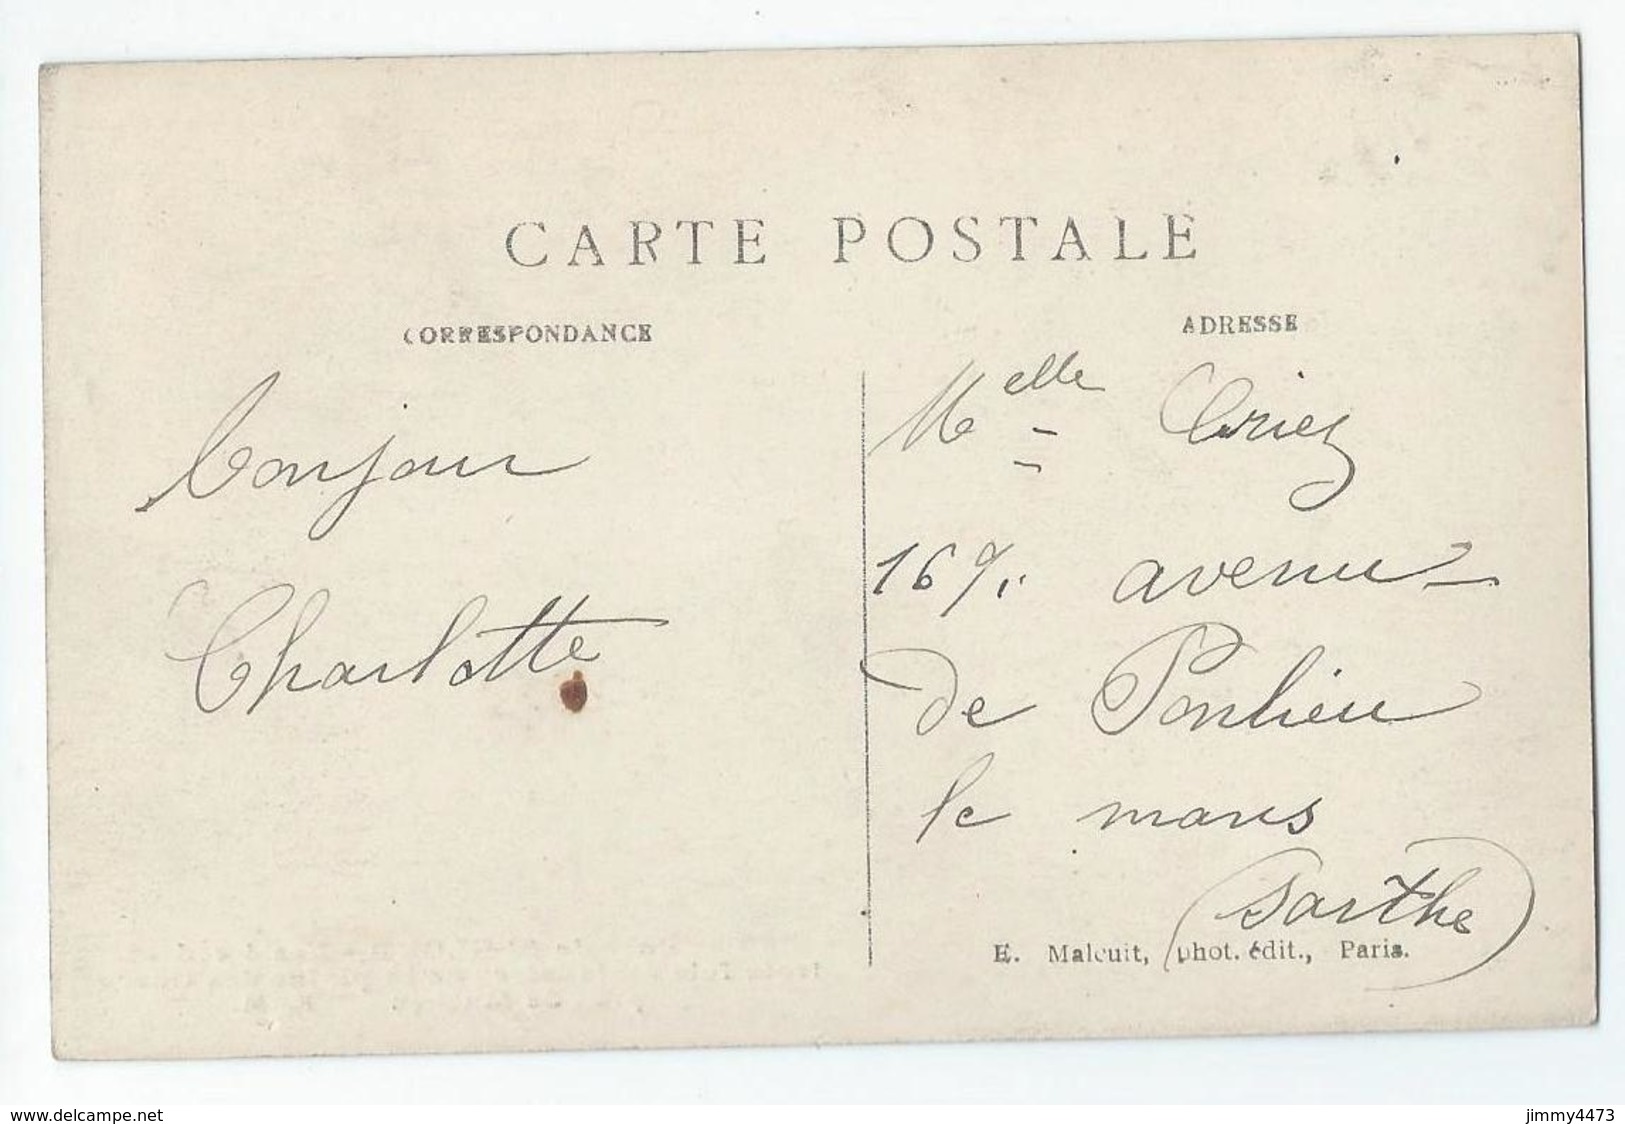 CARTE POSTALE
CORRESPONDANCE
ADRESSE
bonjour
Charlotte
Melle
avenue
de Ponlieu
le mans
Sarthe
E. Malcuit, phot. édit., Paris.
www.delcampe.net
jimmy4473